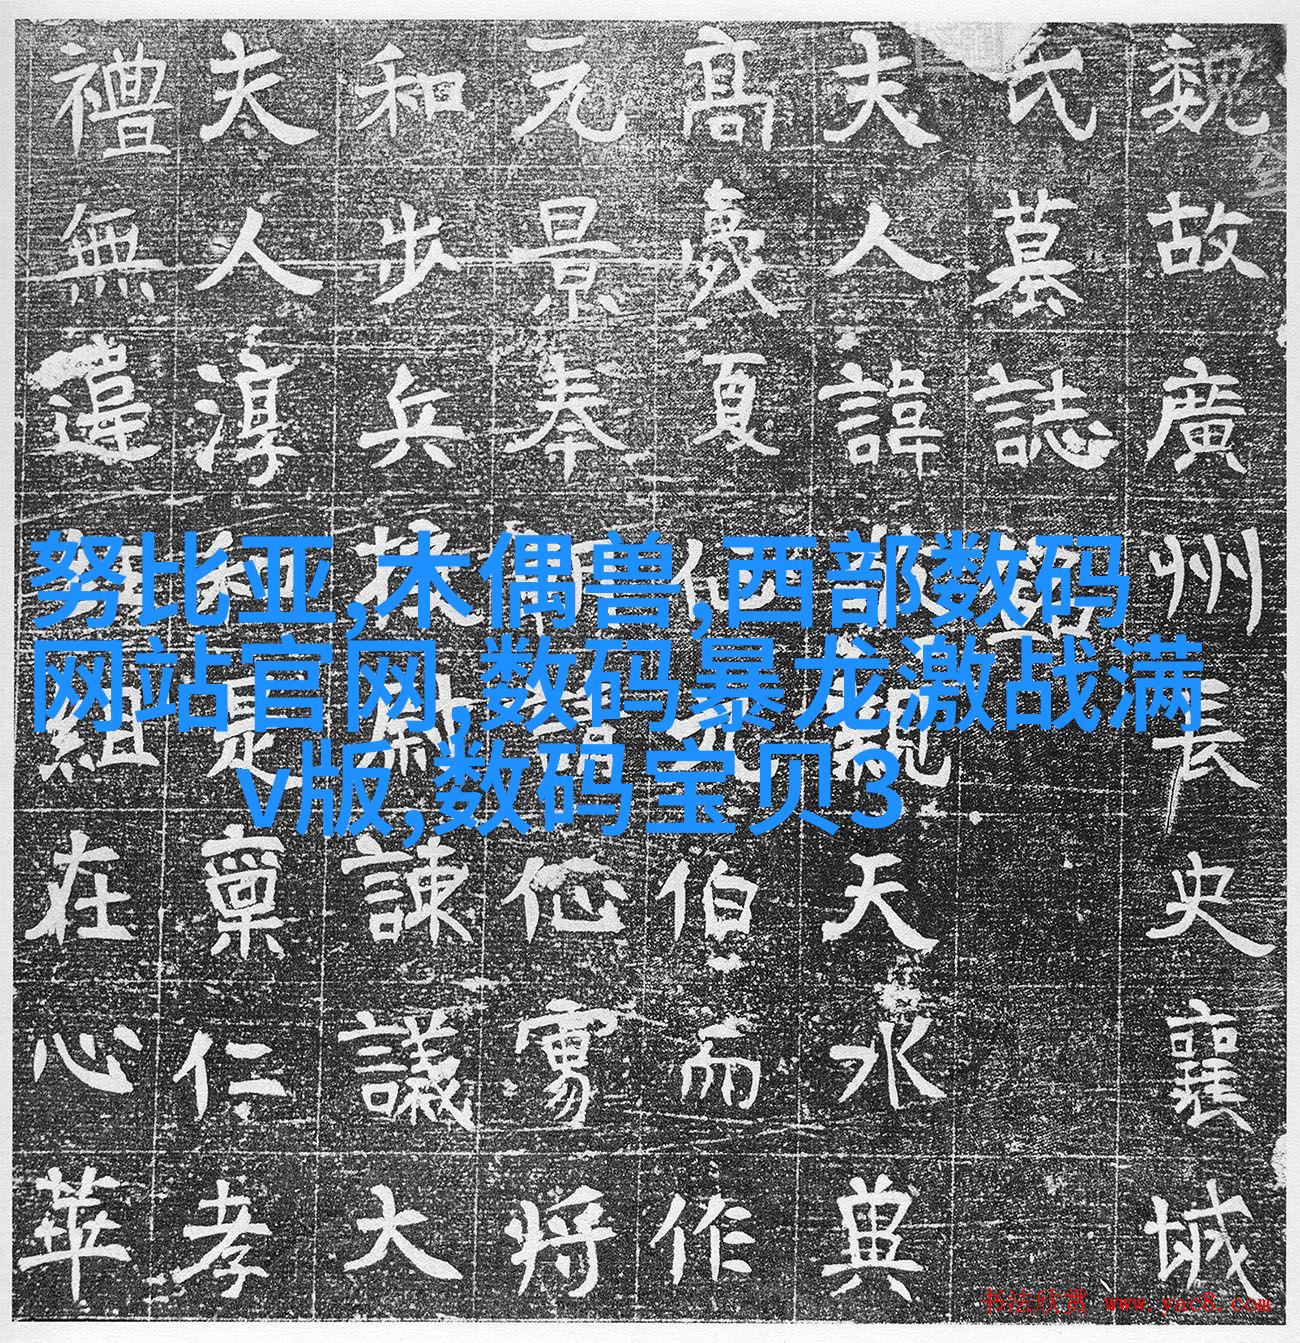 魏故廣州長史襄城
氏墓誌銘
夫人諱天水典
髙夏伯而作
元景奉請将
和步兵校尉諫議大
夫人淳和是稟仁孝
禮無違組在心華
努比亚,木偶兽,西部数码
网站官网,数码暴龙激战满
v版,数码宝贝3
书法欣赏 www.yac8.com